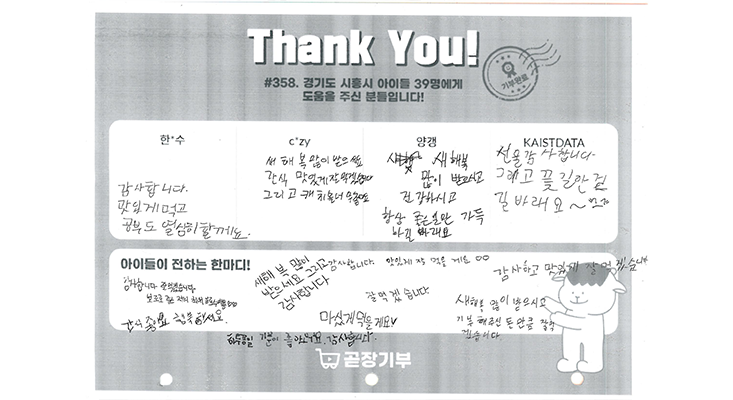 Thank You!
#358. 경기도 시흥시 아이들 39명에게
도움을 주신 분들입니다!
기부완료
한*수
감사합니다.
맛있게 먹고
공부도 열심히 할게요.
c*zy
새해 복 많이 받으세요
간식 맛있게 잘 먹겠습니다
그리고
양갱
새해복
많이 받으시고
건강하시고
항상 좋은일만 가득
하길 바래요
KAISTDATA
선물감사합니다.
그리고 꽃길만 걷
길 바래요~
아이들이 전하는 한마디!
감사합니다
간식 좋아요 행복하세요
새해 복 많이
받으세요 그리고
감사합니다
감사합니다. 맛있게 잘 먹을 게요
잘먹겠습니다
마싰게먹을게요
기분이 좋아요. 감사합니다
감사하고 맛있게 잘 먹겠습니다
새해복 많이 받으시고
기부 해주신 돈 만큼 잘먹
겠습니다
곧장기부